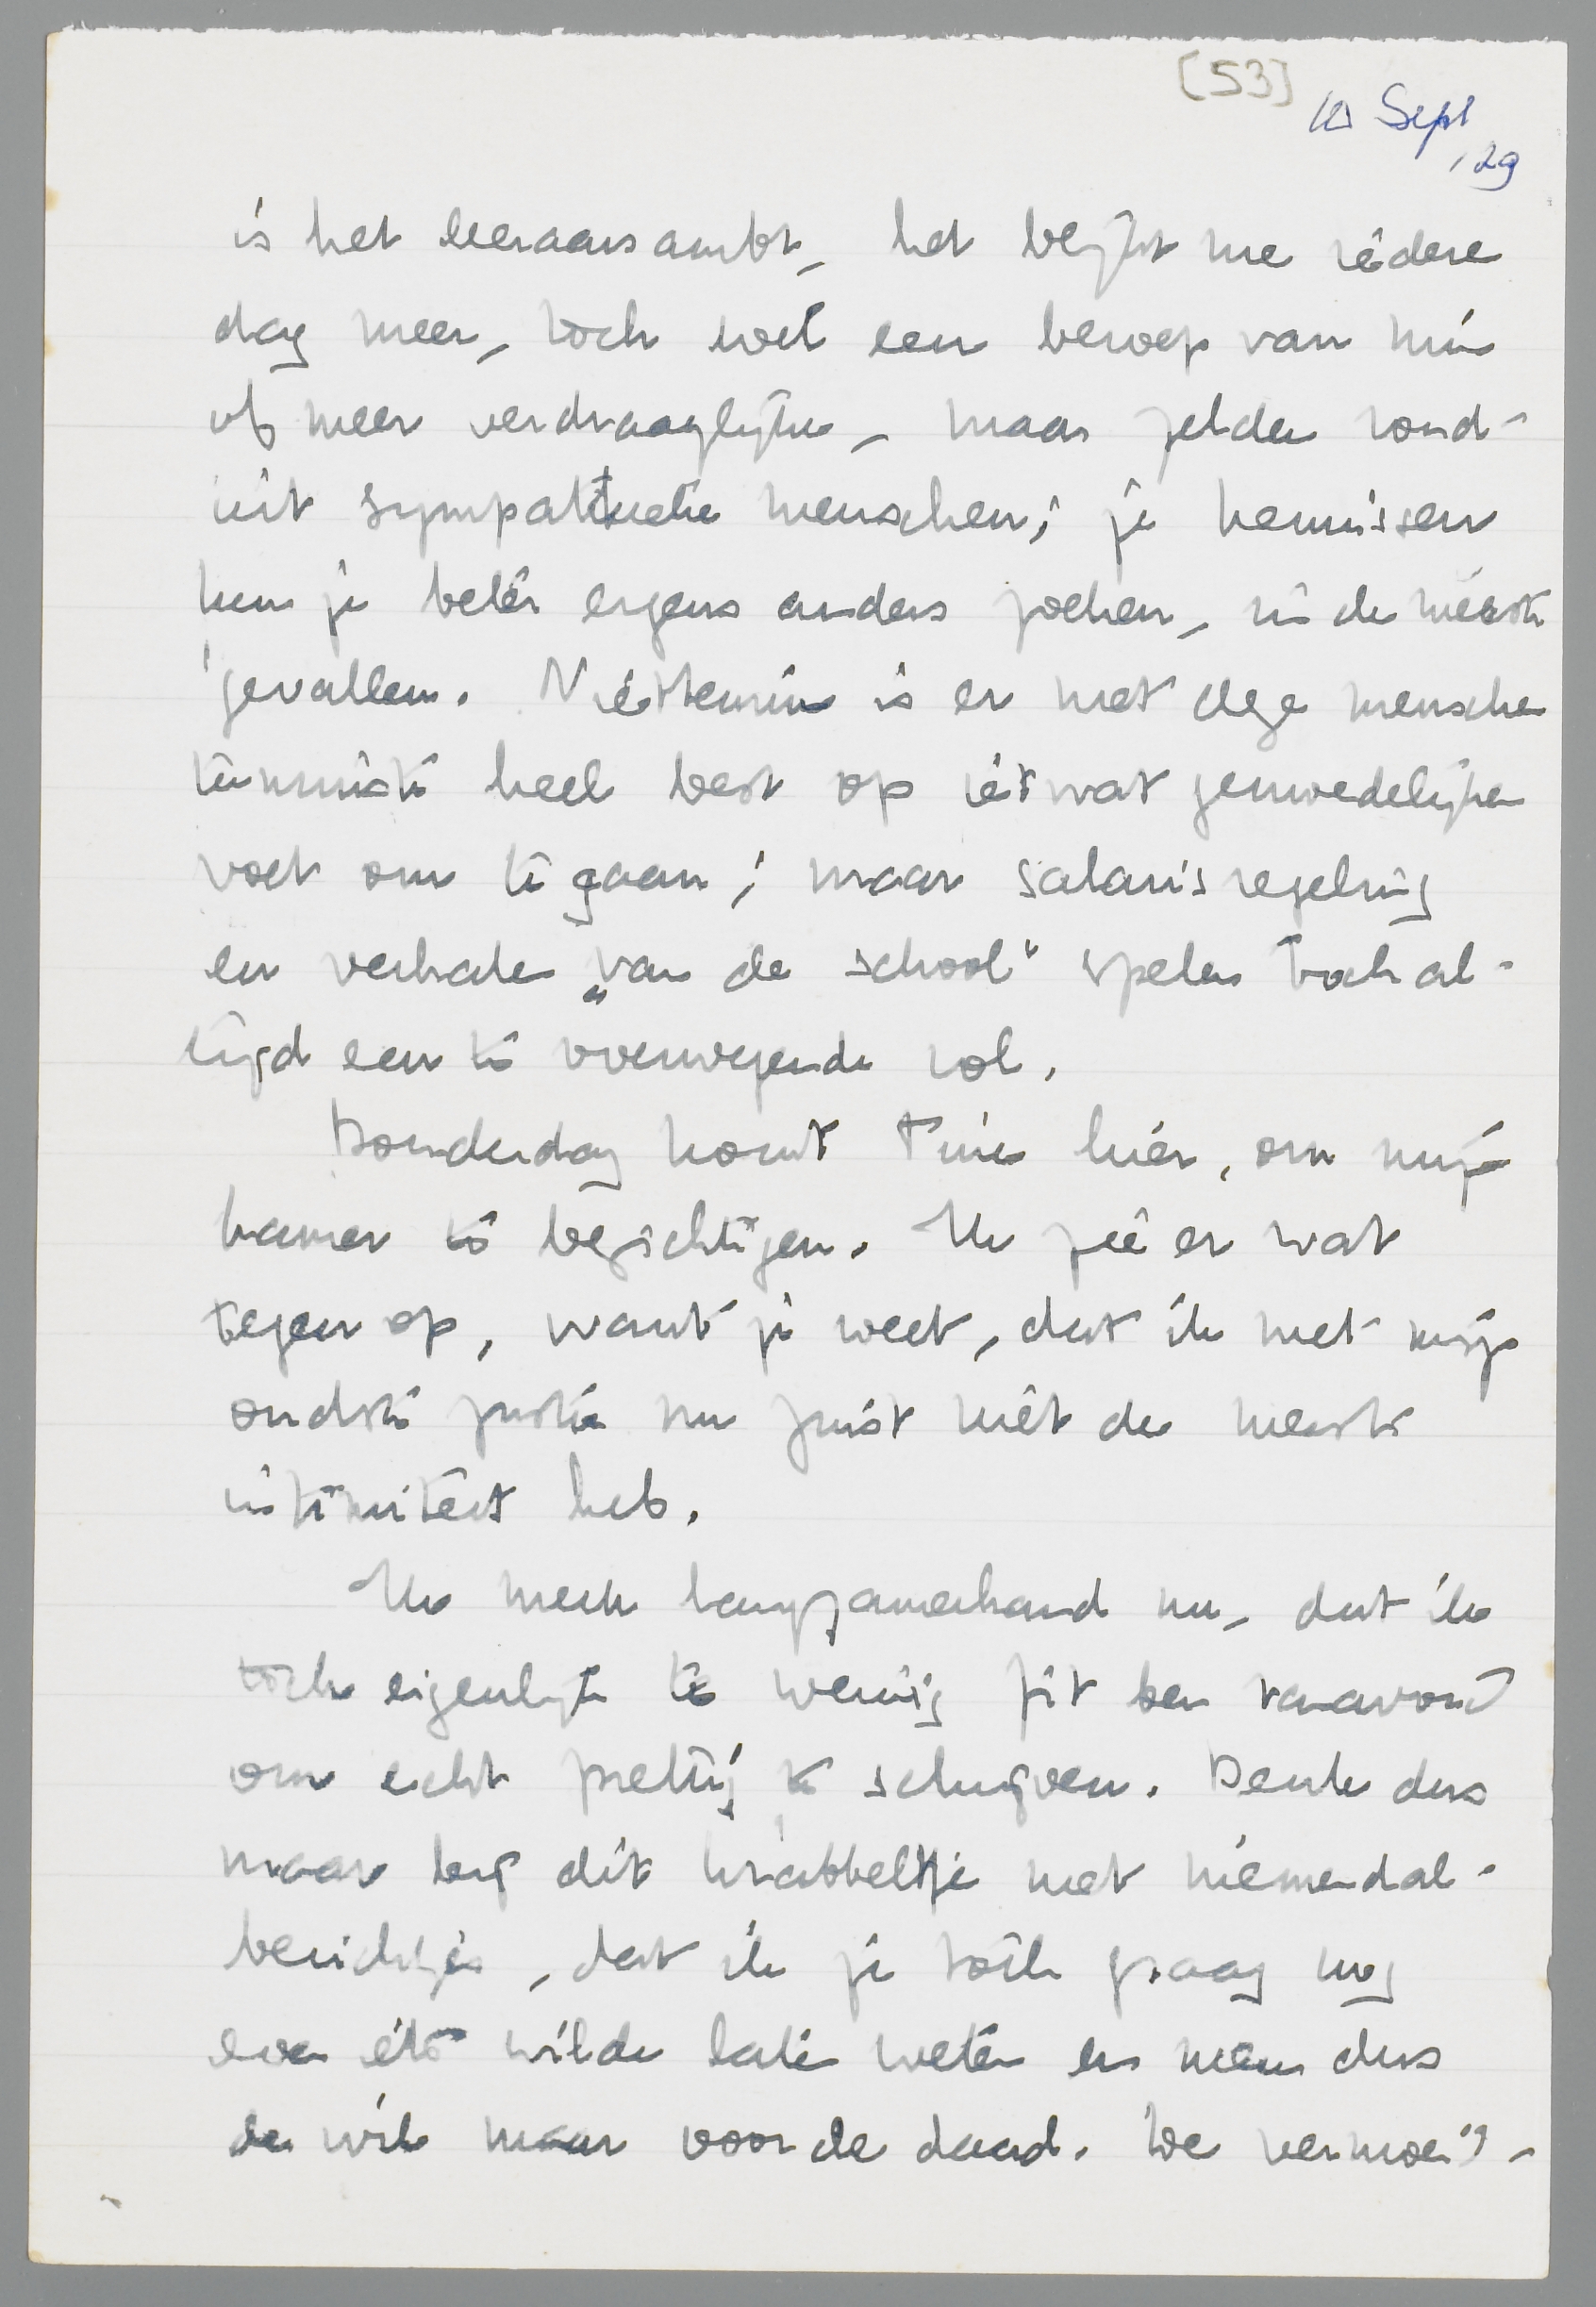 [53]
10 Sept
'29
is het leeraarsambt, het blijkt me iedere
dag meer, toch wel een beroep van min
of meer verdraaglijke, maar zelden rond-
uit sympathieke menschen; je kennissen
kun je beter ergens anders zoeken, in de meeste
gevallen. Niettemin is er met deze menschen
tenminste heel best op ietwat gemoedelijken
voet om te gaan; maar salarisregeling
en verhalen „van de school" spelen toch al-
tijd een te overwegende rol.
Donderdag komt Tine hier, om mijn
kamer te bezichtigen. Ik zie er wat
tegen op, want je weet, dat ik met mijn
oudste zuster nu juist niet de meeste
intimiteit heb.
Ik merk langzamerhand nu, dat ik
toch eigenlijk te weinig fit ben vanavond
om echt prettig te schrijven. Denk dus
maar bij dit krabbeltje met niemendal-
berichtjes, dat ik je toch graag nog
even iets wilde laten weten en neem dus
de wil maar voor de daad. De vermoeid-